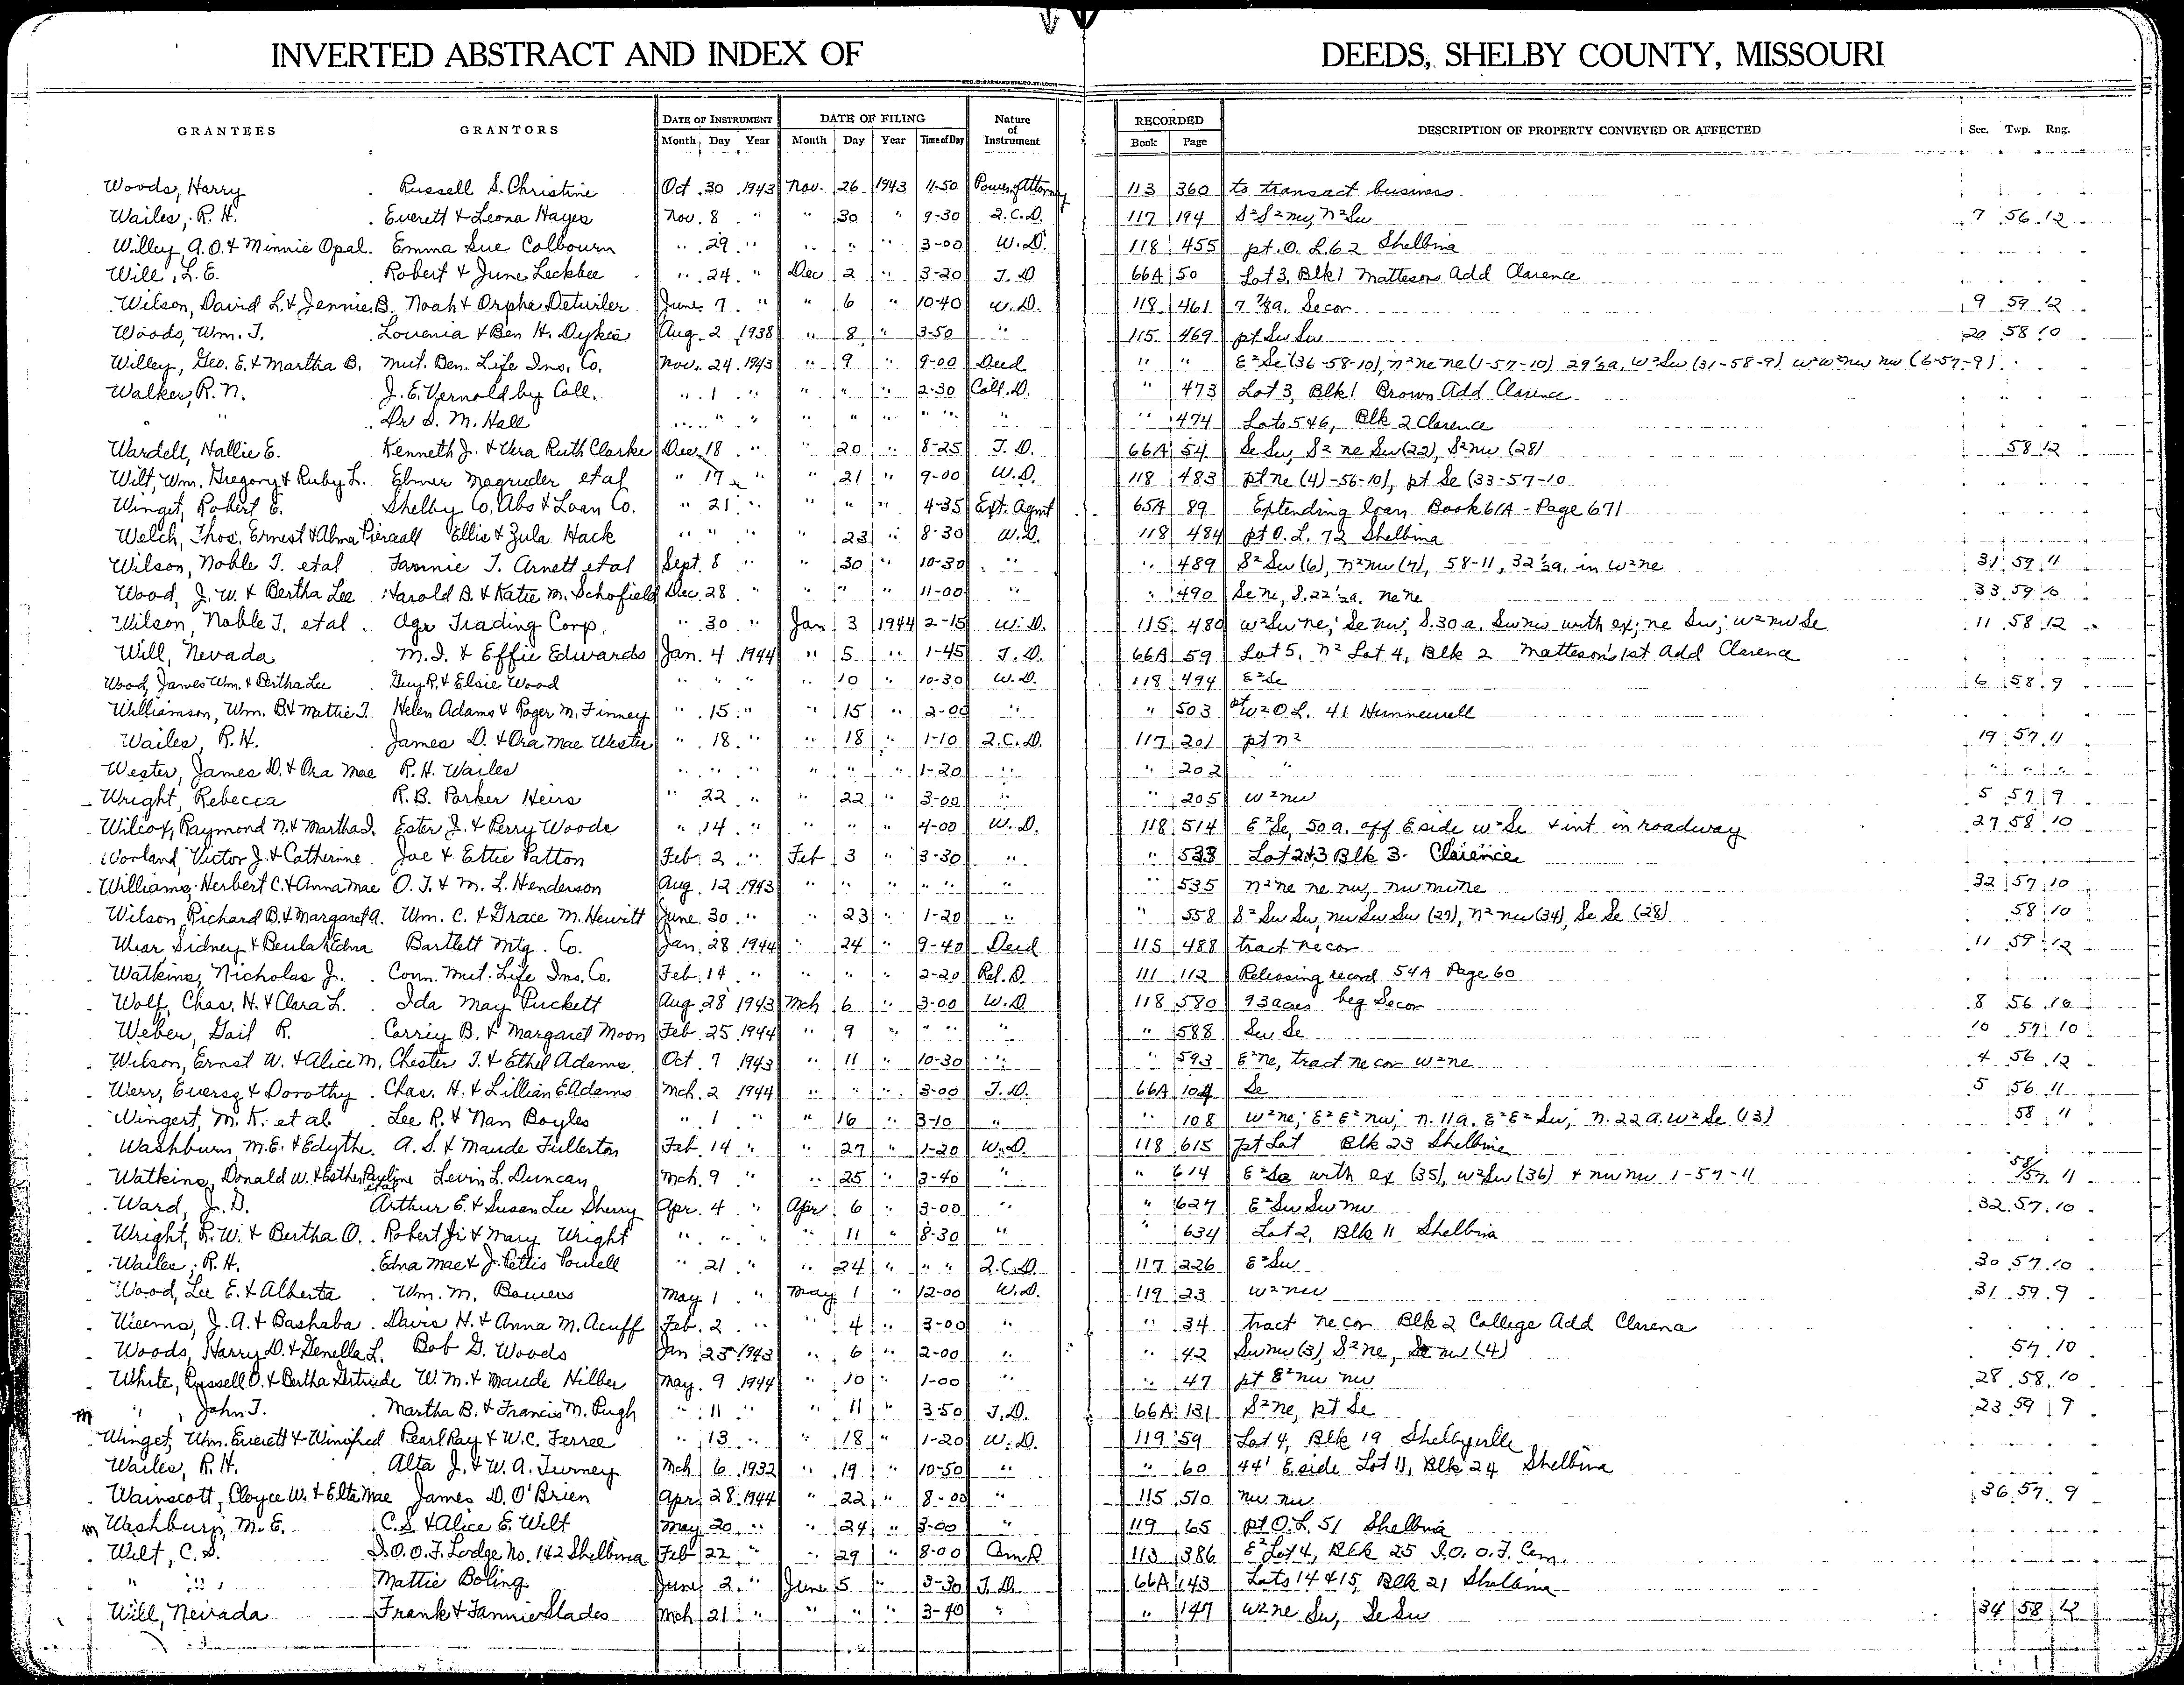 INVERTED ABSTRACT AND INDEX OF DEEDS, SHELBY COUNTY, MISSOURI
GRANTEES GRANTORS DATE OF INSTRUMENT DATE OF FILING Nature of Instrument RECORDED DESCRIPTION OF PROPERTY CONVEYED OR AFFECTED Sec. Twp. Rng.
Month Day Year Month Day Year Time of Day Book Page
Woods, Harry Russell S. Christine Oct. 30 1943 Nov. 26 1943 11-50 Power of Attorney 113 360 to transact business
Wailes, R. H. Everett & Leona Hayes Nov. 8 " " 30 " 9-30 Q.C.D. 117 194 S²S²nw, N²Sw 7 56 12
Willey A.O. & Minnie Opal. Emma Sue Colbourn " 29 " " " " 3-00 W.D. 118 455 pt. O. L. 62 Shelbina
Will, L. E. Robert & June Leckbee " 24 " Dec 2 " 3-20 T.D 66A 50 Lot 3, Blk 1 Mattesons Add Clarence
Wilson, David L. & Jennie B. Noah & Orpha Detwiler June 7 " " 6 " 10-40 W.D. 118 461 7 7/8a. Secor 9 59 12
Woods, Wm. T. Louenia & Ben H. Dykes Aug. 2 1938 " 8 " 3-50 " 115 469 pt Sw Sw 20 58 10
Willey, Geo. E. & Martha B. Mut. Ben. Life Ins. Co. Nov. 24 1943 " 9 " 9-00 Deed " " E²Se (36-58-10), n²ne ne (1-57-10) 29½a, W²Sw (31-58-9) w²w²nw nw (6-57-9)
Walker, R. N. J. E. Vernold by Coll. " 1 " " " " 2-30 Coll. D. " 473 Lot 3, Blk 1 Brown Add Clarence
" Dr S. M. Hall " " " " " " " " " 474 Lots 5 & 6, Blk 2 Clarence
Wardell, Hallie E. Kenneth J. & Vera Ruth Clarke Dec. 18 " " 20 " 8-25 T.D. 66A 54 Se Sw, S² ne Sw (22), S²nw (28) 58 12
Wilt, Wm. Gregory & Ruby L. Elmer Magruder et al " 17 " " 21 " 9-00 W.D. 118 483 pt ne (4)-56-10), pt Se (33-57-10
Winget, Robert E. Shelby Co. Abs & Loan Co. " 21 " " " " 4-35 Ext. Agmt 65A 89 Extending loan Book 61A - Page 671
Welch, Thos. Ernest & Alma Pierceall Ellis & Zula Hack " " " " 23 " 8-30 W.D. 118 484 pt O. L. 72 Shelbina
Wilson, Noble T. etal Fannie T. Arnett et al Sept. 8 " " 30 " 10-30 " " 489 S² Sw (6), N²nw (7), 58-11, 32½a. in W²ne 31 59 11
Wood, J. W. & Bertha Lee Harold B. & Katie M. Schofield Dec. 28 " " " " 11-00 " " 490 Se ne, S. 22½a. ne ne 33 59 10
Wilson, Noble T. etal Agr Trading Corp. " 30 " Jan 3 1944 2-15 W.D. 115 480 W²Sw ne; Se nw; S. 30 a. Sw nw with ex; ne Sw; W² nw Se 11 58 12
Will, Nevada M. I. & Effie Edwards Jan. 4 1944 " 5 " 1-45 T.D. 66A 59 Lot 5, N² Lot 4, Blk 2 Matteson's 1st Add Clarence
Wood, James Wm. & Bertha Lee Guy R. & Elsie Wood " " " " 10 " 10-30 W.D. 118 494 E²Se 6 58 9
Williamson, Wm. B & Mattie T. Helen Adams & Roger M. Finney " 15 " " 15 " 2-00 " " 503 pt W² O L. 41 Hunnewell
Wailes, R. H. James D. & Ora Mae Wester " 18 " " 18 " 1-10 Q.C.D. 117 201 pt N² 19 57 11
Wester, James D. & Ora Mae R. H. Wailes " " " " " " 1-20 " " 202 " " " "
Wright, Rebecca R. B. Parker Heirs " 22 " " 22 " 3-00 " " 205 W²nw 5 57 9
Wilcox, Raymond N. & Martha I. Ester J. & Perry Woods " 14 " " " " 4-00 W.D. 118 514 E²Se, 50 a. off E side W²Se & int in roadway 27 58 10
Worland, Victor J. & Catherine Joe & Ettie Patton Feb. 2 " Feb 3 " 3-30 " " 533 Lot 2&3 Blk 3. Clarence
Williams, Herbert C. & Anna Mae O. T. & M. L. Henderson Aug. 12 1943 " " " " " " " 535 N²ne ne nw, nw nw ne 32 57 10
Wilson, Richard B. & Margaret A. Wm. C. & Grace M. Hewitt June 30 " " 23 " 1-20 " " 558 S² Sw Sw, nw Sw Sw (27), N² nw (34), Se Se (28) 58 10
Wear, Sidney & Beulah Edna Bartlett Mtg. Co. Jan. 28 1944 " 24 " 9-40 Deed 115 488 tract ne cor 11 59 12
Watkins, Nicholas J. Conn. Mut. Life Ins. Co. Feb. 14 " " " " 2-20 Rel. D. 111 112 Releasing record 54A Page 60
Wolf, Chas. H. & Clara L. Ida May Puckett Aug. 28 1943 Mch 6 " 3-00 W.D 118 580 93 acres beg Secor 8 56 10
Weber, Gail R. Carriy B. & Margaret Moon Feb 25 1944 " 9 " " " " " 588 Sw Se 10 57 10
Wilson, Ernst W. & Alice M. Chester T. & Ethel Adams Oct. 7 1943 " 11 " 10-30 " " 593 E²ne, tract ne cor W²ne 4 56 12
Werr, Eversg & Dorothy Chas. H. & Lillian E. Adams Mch. 2 1944 " " " 3-00 T.D. 66A 104 Se 5 56 11
Wingert, M. K. et al Lee R. & Nan Boyles " 1 " " 16 " 3-10 " " 108 W²ne; E² E² nw; N. 11a. E²E² Sw; N. 22 a. W² Se (13) 58 11
Washburn, M. E. & Edythe A. S. & Maude Fullerton Feb 14 " " 27 " 1-20 W.D. 118 615 pt Lot Blk 23 Shelbina
Watkins, Donald W. & Esther Pauline etal Levin L. Duncan Mch. 9 " " 25 " 3-40 " " 614 E²Se with ex (35), W²Sw (36) & nw nw 1-57-11 58/57 11
Ward, J. D. Arthur E. & Susan Lee Sherry Apr. 4 " Apr 6 " 3-00 " " 627 E² Sw Sw nw 32 57 10
Wright, R. W. & Bertha O. Robert Jr & Mary Wright " " " " 11 " 8-30 " " 634 Lot 2, Blk 11 Shelbina
Wailes, R. H. Edna Mae & J. Pettis Powell " 21 " " 24 " " " Q.C.D. 117 226 E²Sw 30 57 10
Wood, Lee E. & Alberta Wm. M. Bowers May 1 " May 1 " 12-00 W.D. 119 23 W²nw 31 59 9
Weems, J. A. & Bashaba Davis H. & Anna M. Acuff Feb. 2 " " 4 " 3-00 " " 34 tract ne cor Blk 2 College Add Clarence
Woods, Harry D. & Genella L. Bob G. Woods Jan 25 1943 " 6 " 2-00 " " 42 Sw nw (3), S²ne, Se nw (4) 57 10
White, Russell O. & Bertha Gertrude W. M. & Maude Hilber May 9 1944 " 10 " 1-00 " " 47 pt E² nw nw 28 58 10
m " , John T. Martha B. & Francis M. Pugh " 11 " " 11 " 3-50 T.D. 66A 131 S²ne, pt Se 23 59 9
Winget, Wm. Everett & Winifred Pearl Ray & W. C. Ferree " 13 " " 18 " 1-20 W.D. 119 59 Lot 4, Blk 19 Shelbyville
Wailes, R. H. Alta J. & W. A. Turney Mch 6 1932 " 19 " 10-50 " " 60 44' E. side Lot 11, Blk 24 Shelbina
Wainscott, Cloyce W. & Elta Mae James D. O'Brien Apr. 28 1944 " 22 " 8-00 " 115 510 nw nw 36 57 9
m Washburn, M. E. C. S. & Alice E. Wilt May 20 " " 24 " 3-00 " 119 65 pt O. L. 51 Shelbina
Wilt, C. S. I.O.O.F. Lodge No. 142 Shelbina Feb 22 " " 29 " 8-00 Cem D 113 386 E² Lot 4, Blk 25 I.O.O.F. Cem.
" " Mattie Boling June 2 " June 5 " 3-30 T.D. 66A 143 Lots 14 & 15, Blk 21 Shelbina
Will, Nevada Frank & Fannie Slades Mch 21 " " " " 3-40 " " 147 W²ne Sw, Se Sw 34 58 12